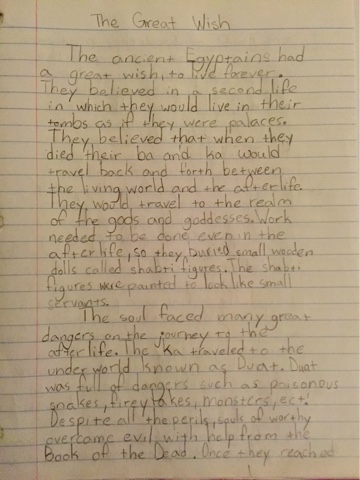 The Great Wish
The ancient Egyptains had
a great wish, to live forever.
They balieved in a second life
in which they would live in their
tombs as if they were palaces.
They believed that when they
died their ba and ka would
travel back and forth between
the living world and the afterlife.
They would travel to the realm
of the gods and goddesses. Work
needed to be done even in the
afterlife, so they buried small wooden
dolls called shabti figures. The shabti
figures were painted to look like small
servants.
The soul faced many great
dangers on the journey to the
afterlife. The Ka traveled to the
under world known as Duat. Duat
was full of dangers such as
snakes, firey lakes, monsters, ect.
Despite all the perils, souls of worthy
overcame evil, with help from the
Book of the Dead. Once they reached